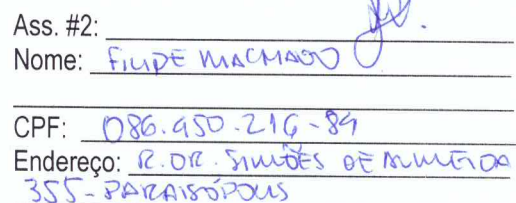 Ass. #2:
Nome: FILIPE MACHADO
CPF: 086.950.216-89
Endereço: R. DR. SIMÕES DE ALMEIDA
355 - PARAISÓPOLIS